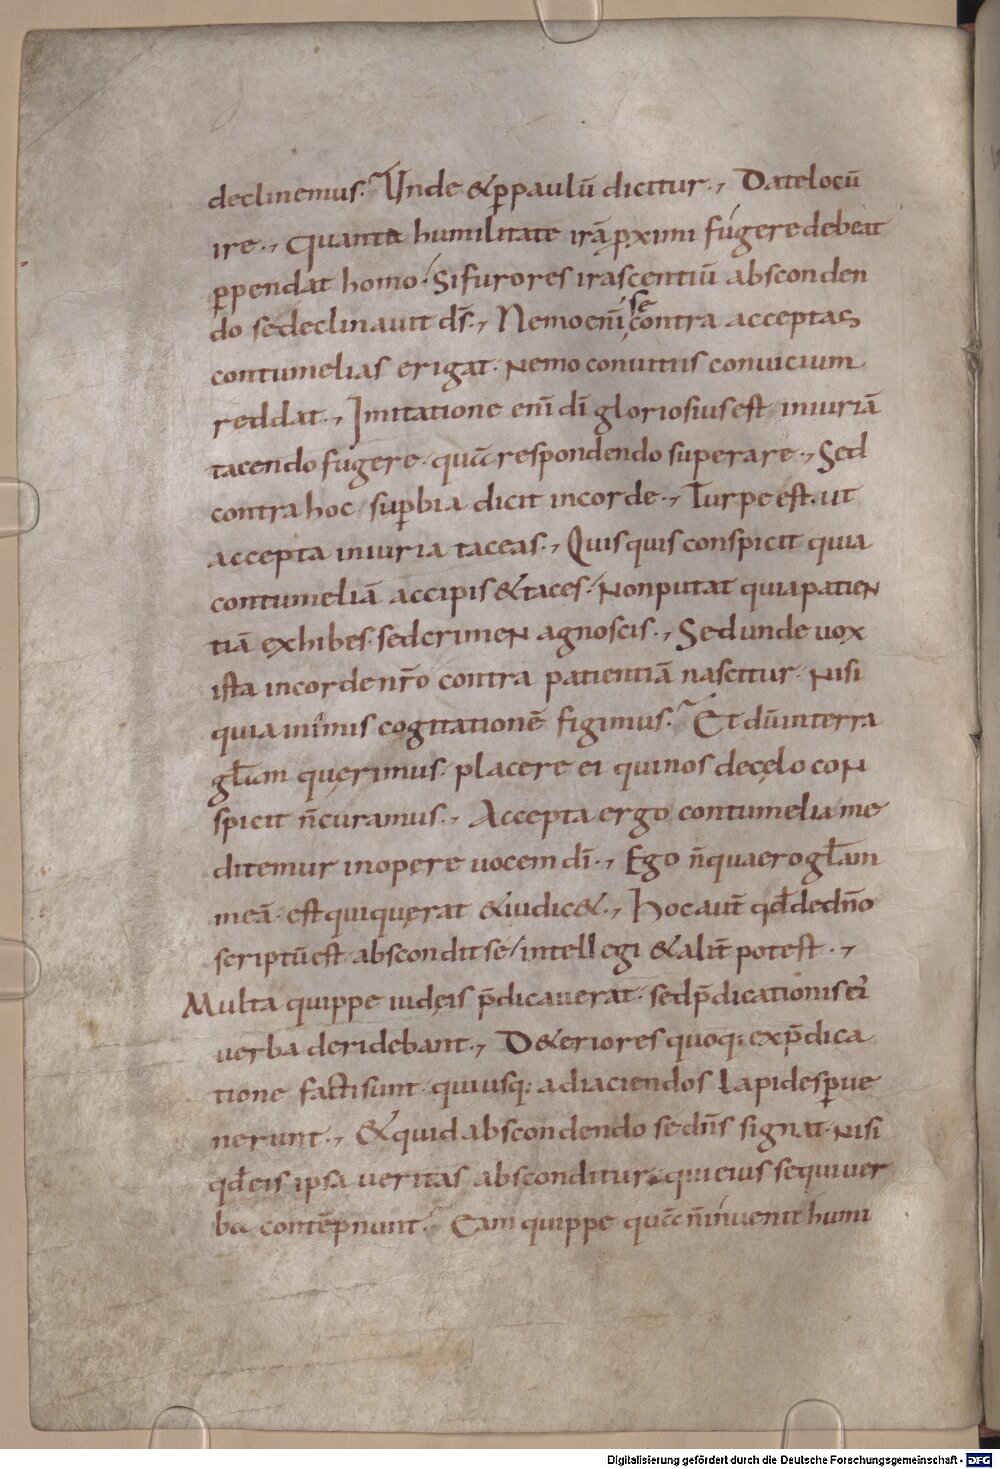 declinemus. Unde & ꝑ paulū dicitur., Date locū
ire., Quanta humilitate irā ꝓximi fugere debeat
ꝑpendat homo. Si furores irascentiū absconden
do se declinavit dr̄s., Nemo enī se contra acceptas
contumelias erigat. Nemo convitiis convicium
reddat., Imitatione enī dī gloriosius est. iniuriā
tacendo fugere. quā respondendo superare., Sed
contra hoc suꝑbia dicit in corde., Turpe est. ut
accepta iniuria taceas., Quisquis conspicit quia
contumeliā accipis & taces. Non putat quia patien
tiā exhibes. sed crimen agnoscis., Sed unde vox
ista in corde nr̄o contra patientiā nascitur. Nisi
quia in imis cogitationē figimus. Et dū in terra
gl̄am quęrimus. placere ei qui nos de cęlo con
spicit n̄ curamus., Accepta ergo contumelia me
ditemur in opere vocem dī., Ego n̄ quaero gl̄am
meā. est qui quęrat & iudic&., Hoc aut̄ qđ de dn̄o
scriptū est abscondit se / intellegi & alit̄ potest.,
Multa quippe iudeis p̄dicaverat. sed p̄dicationis ei
verba deridebant., D&eriores quoq; ex p̄dica
tione facti sunt. qui usq; ad iaciendos lapides ꝑve
nerunt., & quid abscondendo se dn̄s signat. Nisi
qđ eis ipsa veritas absconditur. qui eius sequi ver
ba contēpnunt. Eam quippe quā n̄ invenit humi
Digitalisierung gefördert durch die Deutsche Forschungsgemeinschaft - DFG